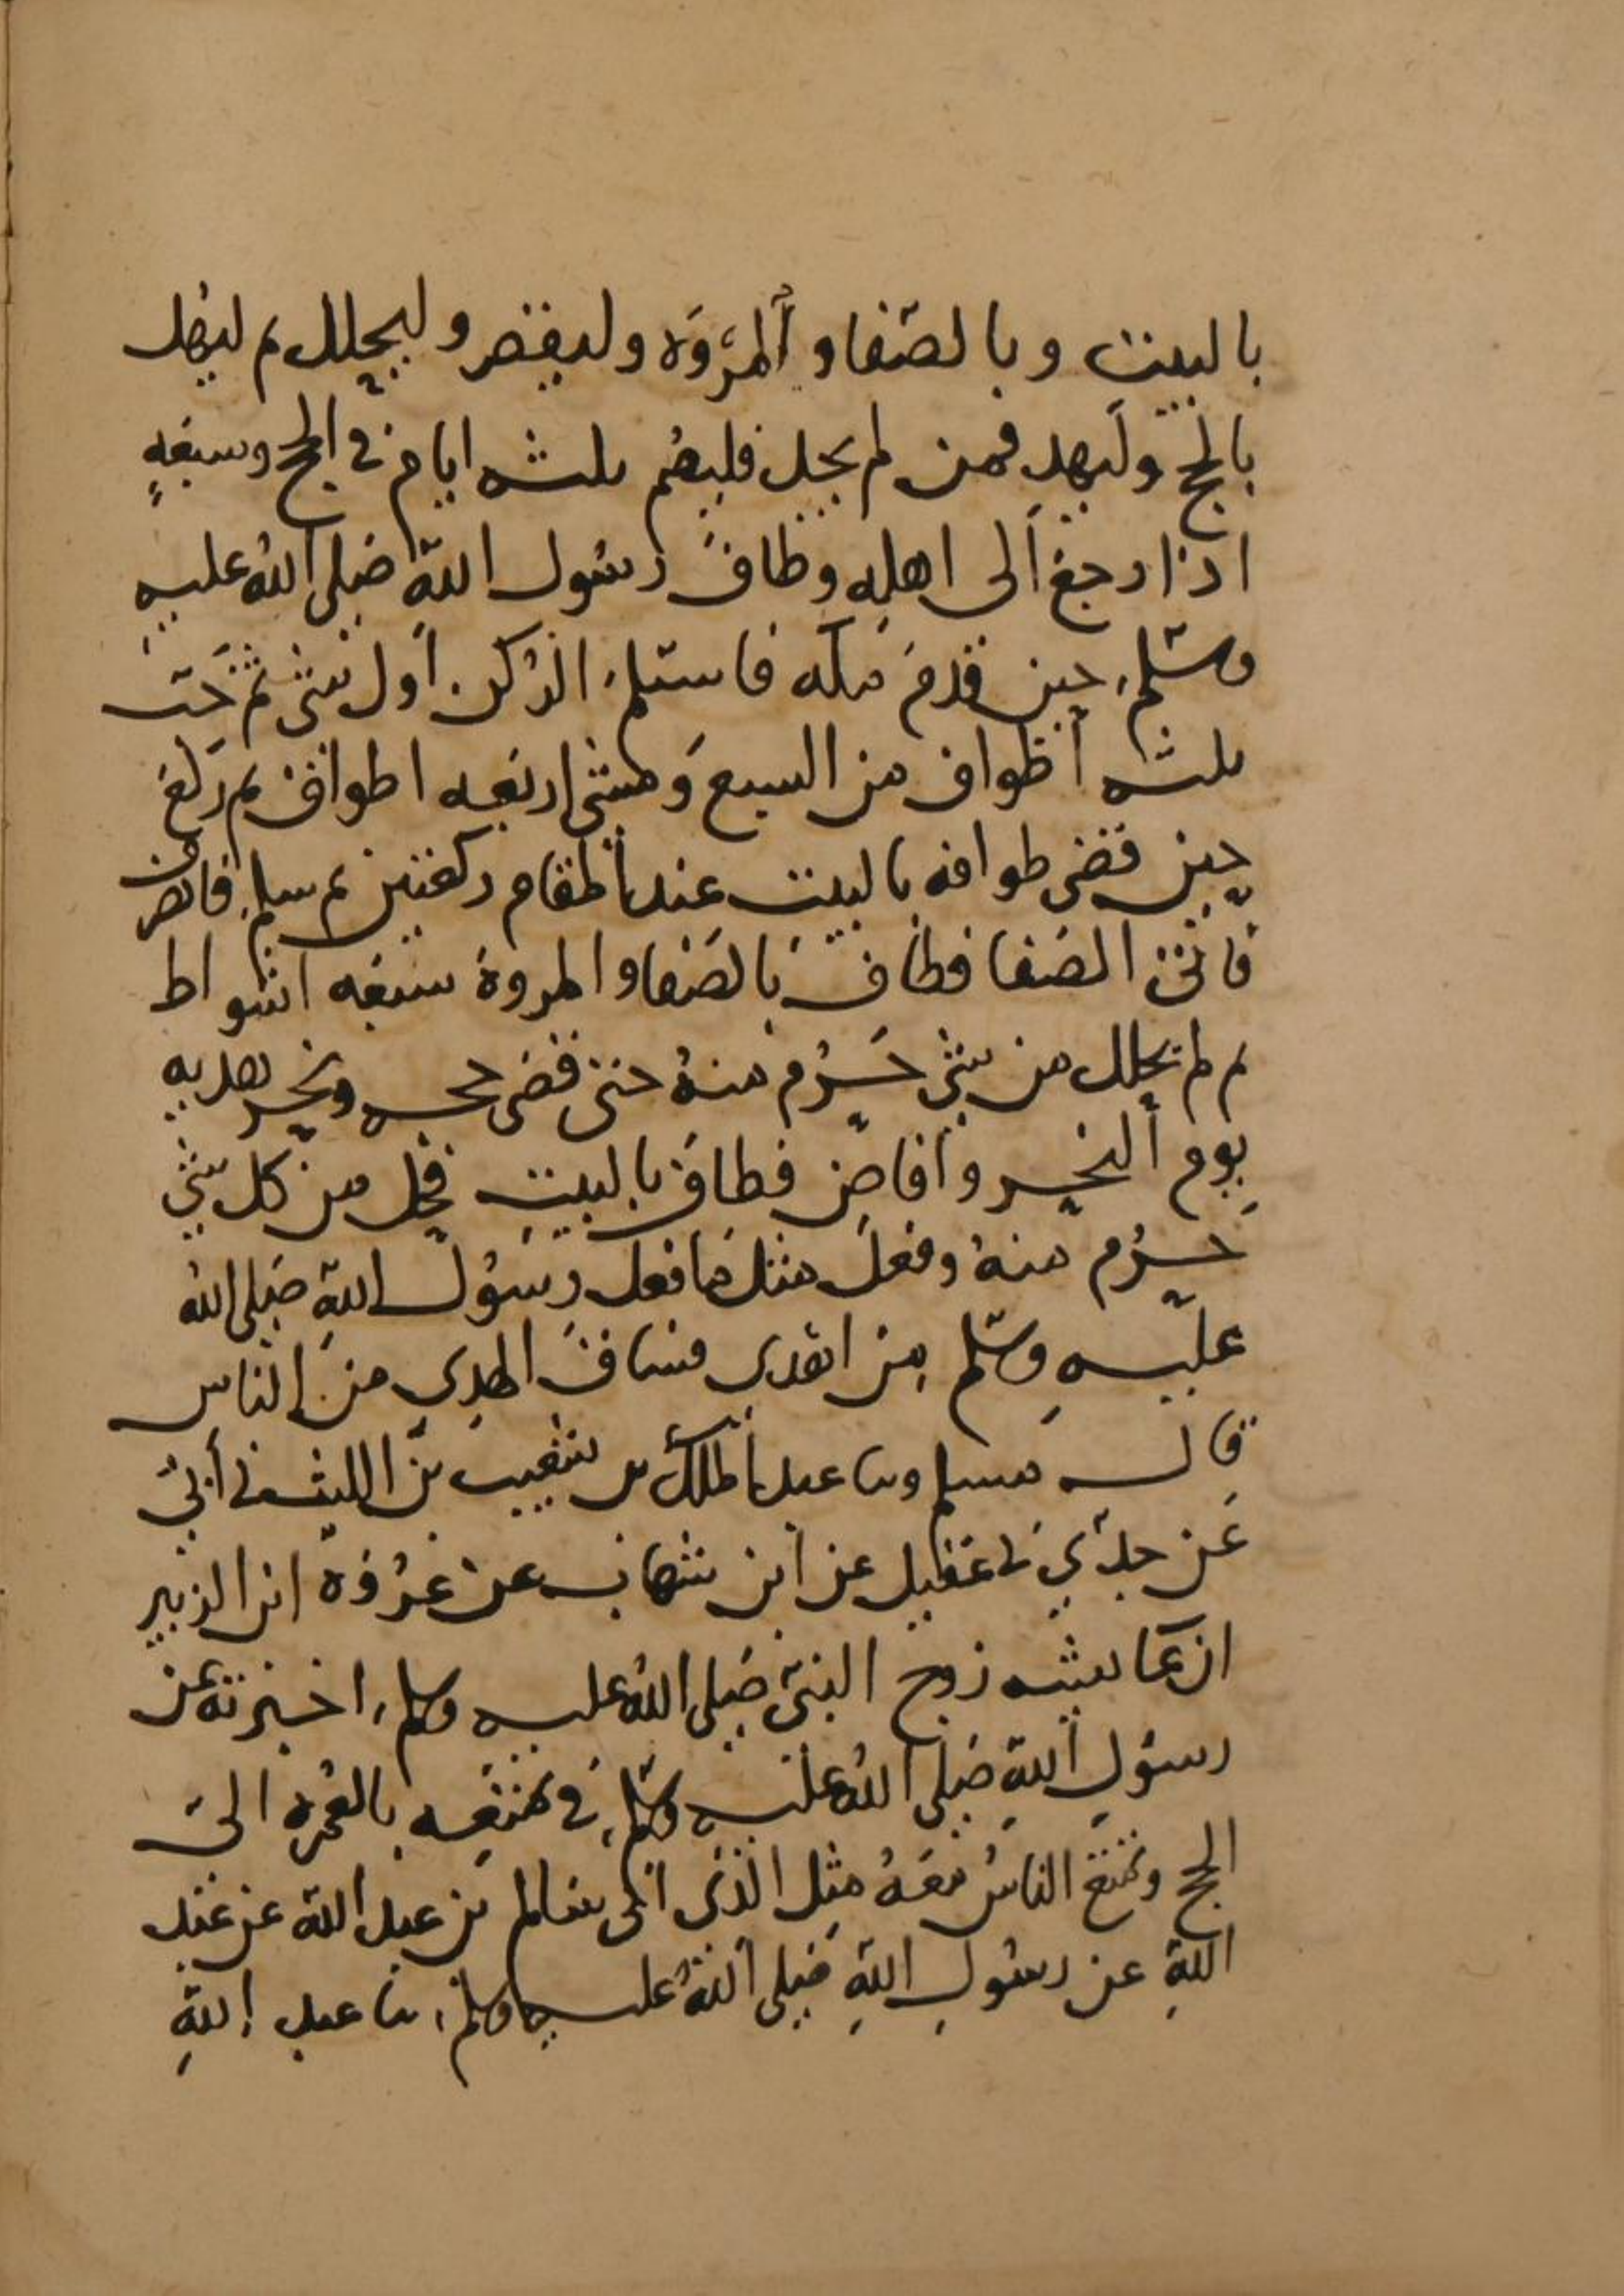 بالبيت وبالصفا والمروة وليقصر وليحلل ثم ليهل
بالحج وليهد فمن لم يجد فليصم ثلثه ايام في الحج وسبعةٍ
اذا رجع الى اهله وطاف رسول اللّه صلى اللّه عليه
وسلم حين قدم مكه فاستلم الركن اول شي ثم خب
ثلثه اطواف من السبع ومشى اربعه اطواف ثم ركع
حين قضى طوافه بالبيت عند المقام ركعتين ثم سلم فانصرف
فاتى الصفا فطاف بالصفا والمروة سبعه اشواط
ثم لم يحلل من شي حَرُم منهُ حتى قضى حجه ونحر هديه
يوم النحر وافاض فطاف بالبيت فحل من كل شي
حرُم منهُ وفعل مثل ما فعل رسول اللّه صلى اللّه
عليه وسلم من اهدى فساق الهدي من الناس
قال مسلم وسا عبد الملك بن شعيب بن الليث ني أبي
عن جدي ني عقيل عن ابن شهاب عن عروه ابن الزبير
ان عايشه زوج النبي صلى اللّه عليه وسلم اخبرته عن
رسول اللّه صلى اللّه عليه وسلم في تمتعه بالعمره الى
الحج وتمتع الناس معهُ مثل الذي اني سالم بن عبد اللّه عن عبد
اللّه عن رسول اللّه صلى اللّه عليه وسلم سا عبد اللّه